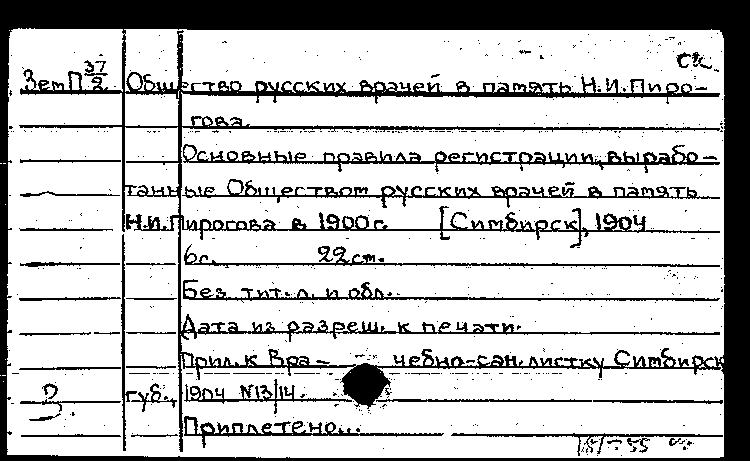 Ск
ЗемП 37/2 Общество русских врачей в память Н.И.Пиро-
гова.
Основные правила регистрации, вырабо-
танные Обществом русских врачей в память
Н.И.Пирогова в 1900г. [Симбирск], 1904
6с. 22см.
Без тит.л. и обл.
Дата из разреш. к печати.
Прил. к Вра- чебно-сан. листку Симбирск
З. губ., 1904 №13/14.
Приплетено...